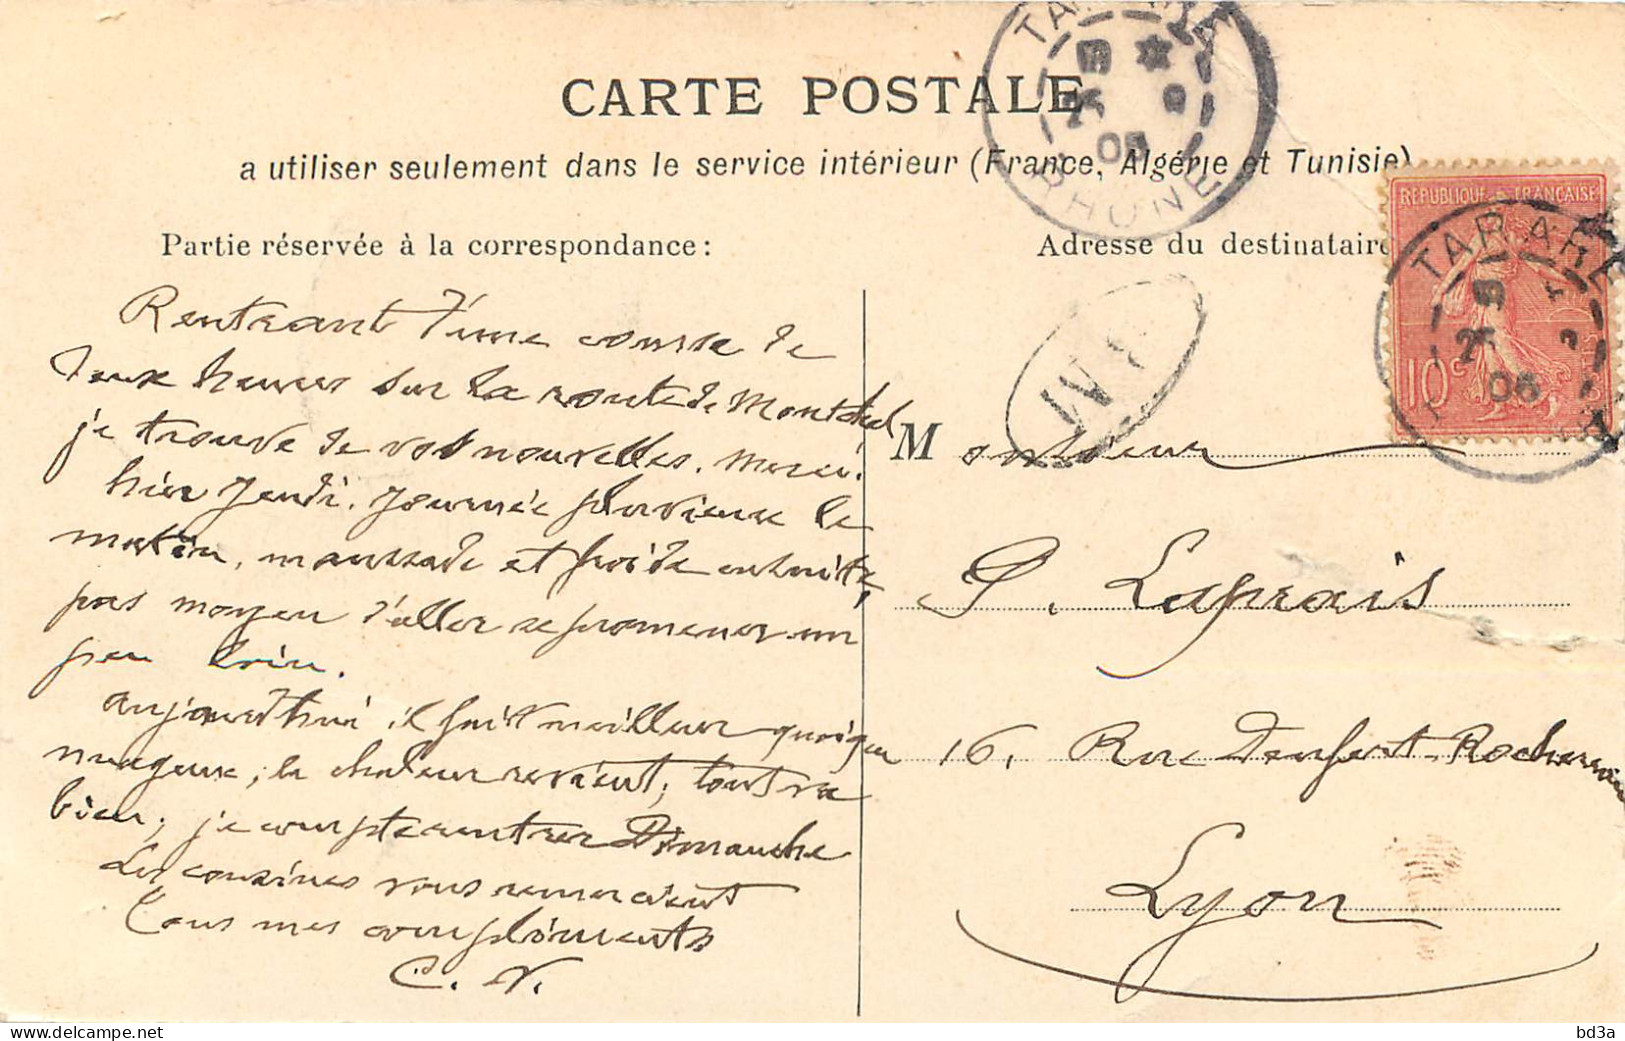 CARTE POSTALE
a utiliser seulement dans le service intérieur (France, Algérie et Tunisie)
Partie réservée à la correspondance:
Rentrant d'une course de
deux heures sur la route de
je trouve de vos nouvelles. merci.
hier jeudi. Journée pluvieuse le
matin, maussade et froide ensuite,
pas moyen d'aller se promener un
peu loin.
aujourd'hui il fait meilleur quoique
nuageux, la chaleur revient, tout va
bien; je compte rentrer Dimanche
Les cousines vous remercient
Tous mes compliments
C. N.
Adresse du destinataire
Monsieur
P. Laprais
16, Rue Denfert-Rochereau
Lyon
TARARE
RHONE
RÉPUBLIQUE FRANÇAISE
10c
TARARE
06
delcampe.net
bd3a